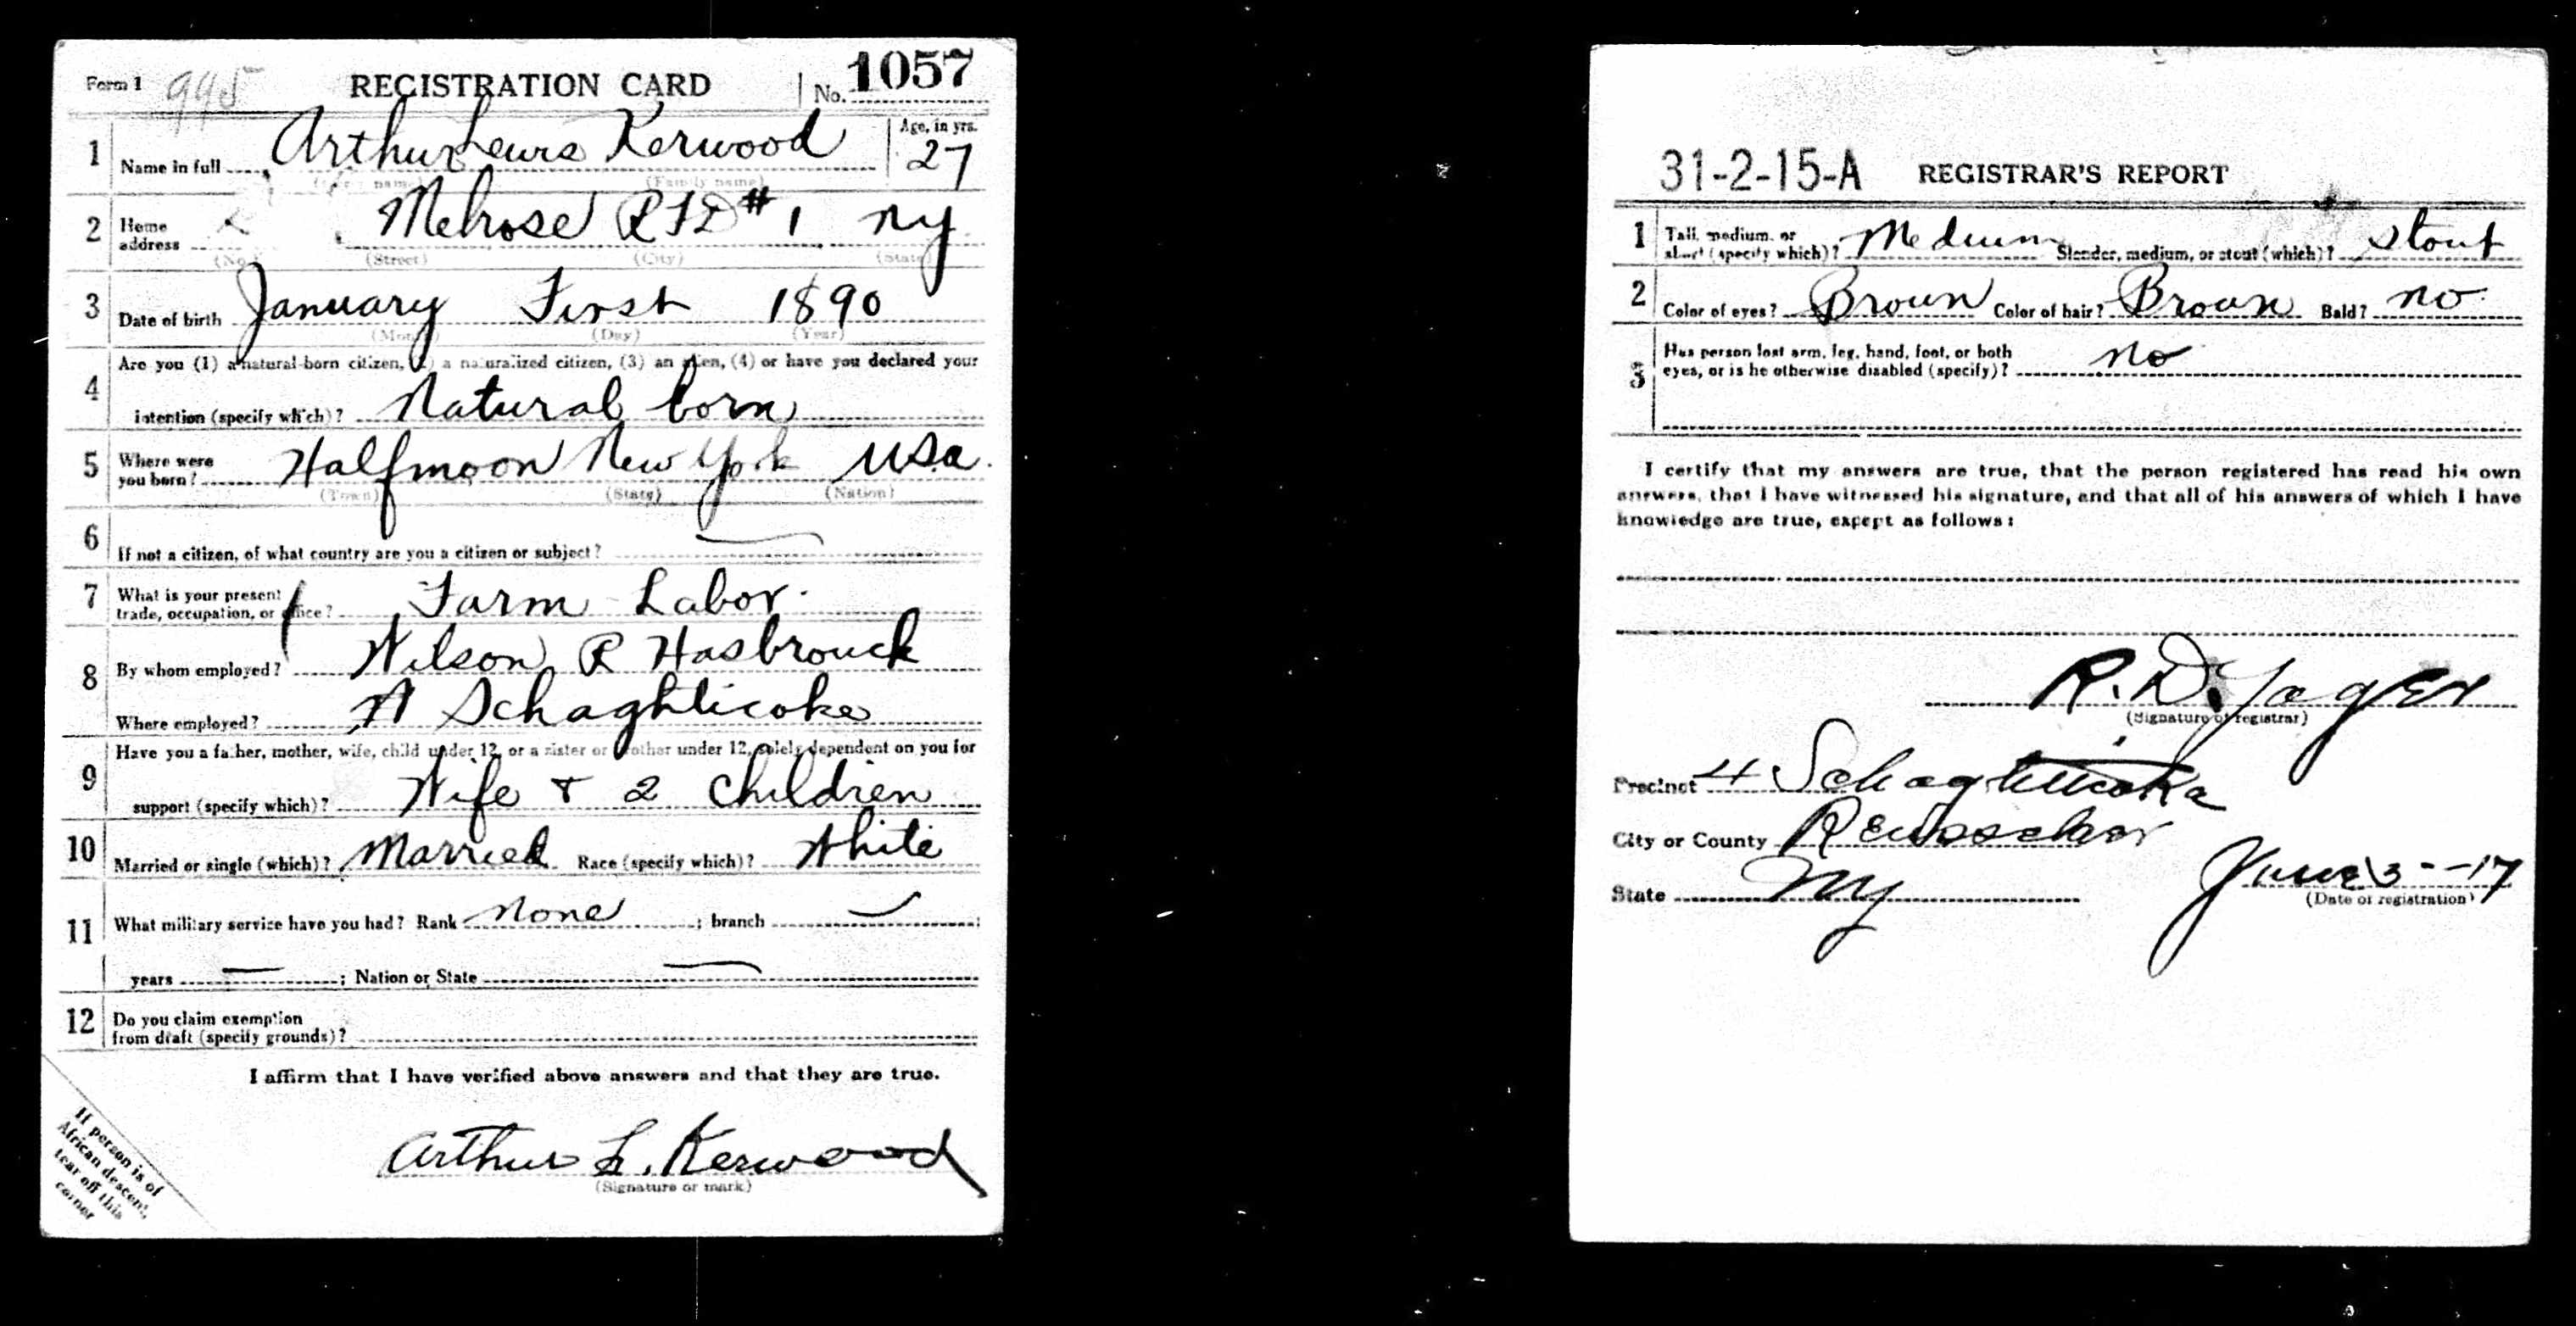 Form 1 995 REGISTRATION CARD No. 1057
1 Name in full Arthur Lewis Kerwood Age, in yrs. 27
(Family name)
2 Home address Melrose RFD #1 NY
(No.) (Street) (City) (State)
3 Date of birth January First 1890
(Month) (Day) (Year)
4 Are you (1) a natural-born citizen, (2) a naturalized citizen, (3) an alien, (4) or have you declared your
intention (specify which)? Natural born
5 Where were you born? Halfmoon New York USA.
(Town) (State) (Nation)
6 If not a citizen, of what country are you a citizen or subject?
7 What is your present trade, occupation, or office? Farm Labor.
8 By whom employed? Wilson R Hasbrouck
Where employed? Schaghticoke
9 Have you a father, mother, wife, child under 12, or a sister or brother under 12, solely dependent on you for
support (specify which)? Wife + 2 Children
10 Married or single (which)? Married Race (specify which)? White
11 What military service have you had? Rank None ; branch ;
years ; Nation or State
12 Do you claim exemption
from draft (specify grounds)?
I affirm that I have verified above answers and that they are true.
Arthur L. Kerwood
(Signature or mark)
If person is of
African descent,
tear off this
corner
31-2-15-A REGISTRAR'S REPORT
1 Tall, medium, or short (specify which)? Medium Slender, medium, or stout (which)? Stout
2 Color of eyes? Brown Color of hair? Brown Bald? no
3 Has person lost arm, leg, hand, foot, or both
eyes, or is he otherwise disabled (specify)? no
I certify that my answers are true, that the person registered has read his own
answers, that I have witnessed his signature, and that all of his answers of which I have
knowledge are true, except as follows:
R. D. Yager
(Signature of registrar)
Precinct 4 Schaghticoke
City or County Rensselaer
State NY June 3 - - 17
(Date of registration)